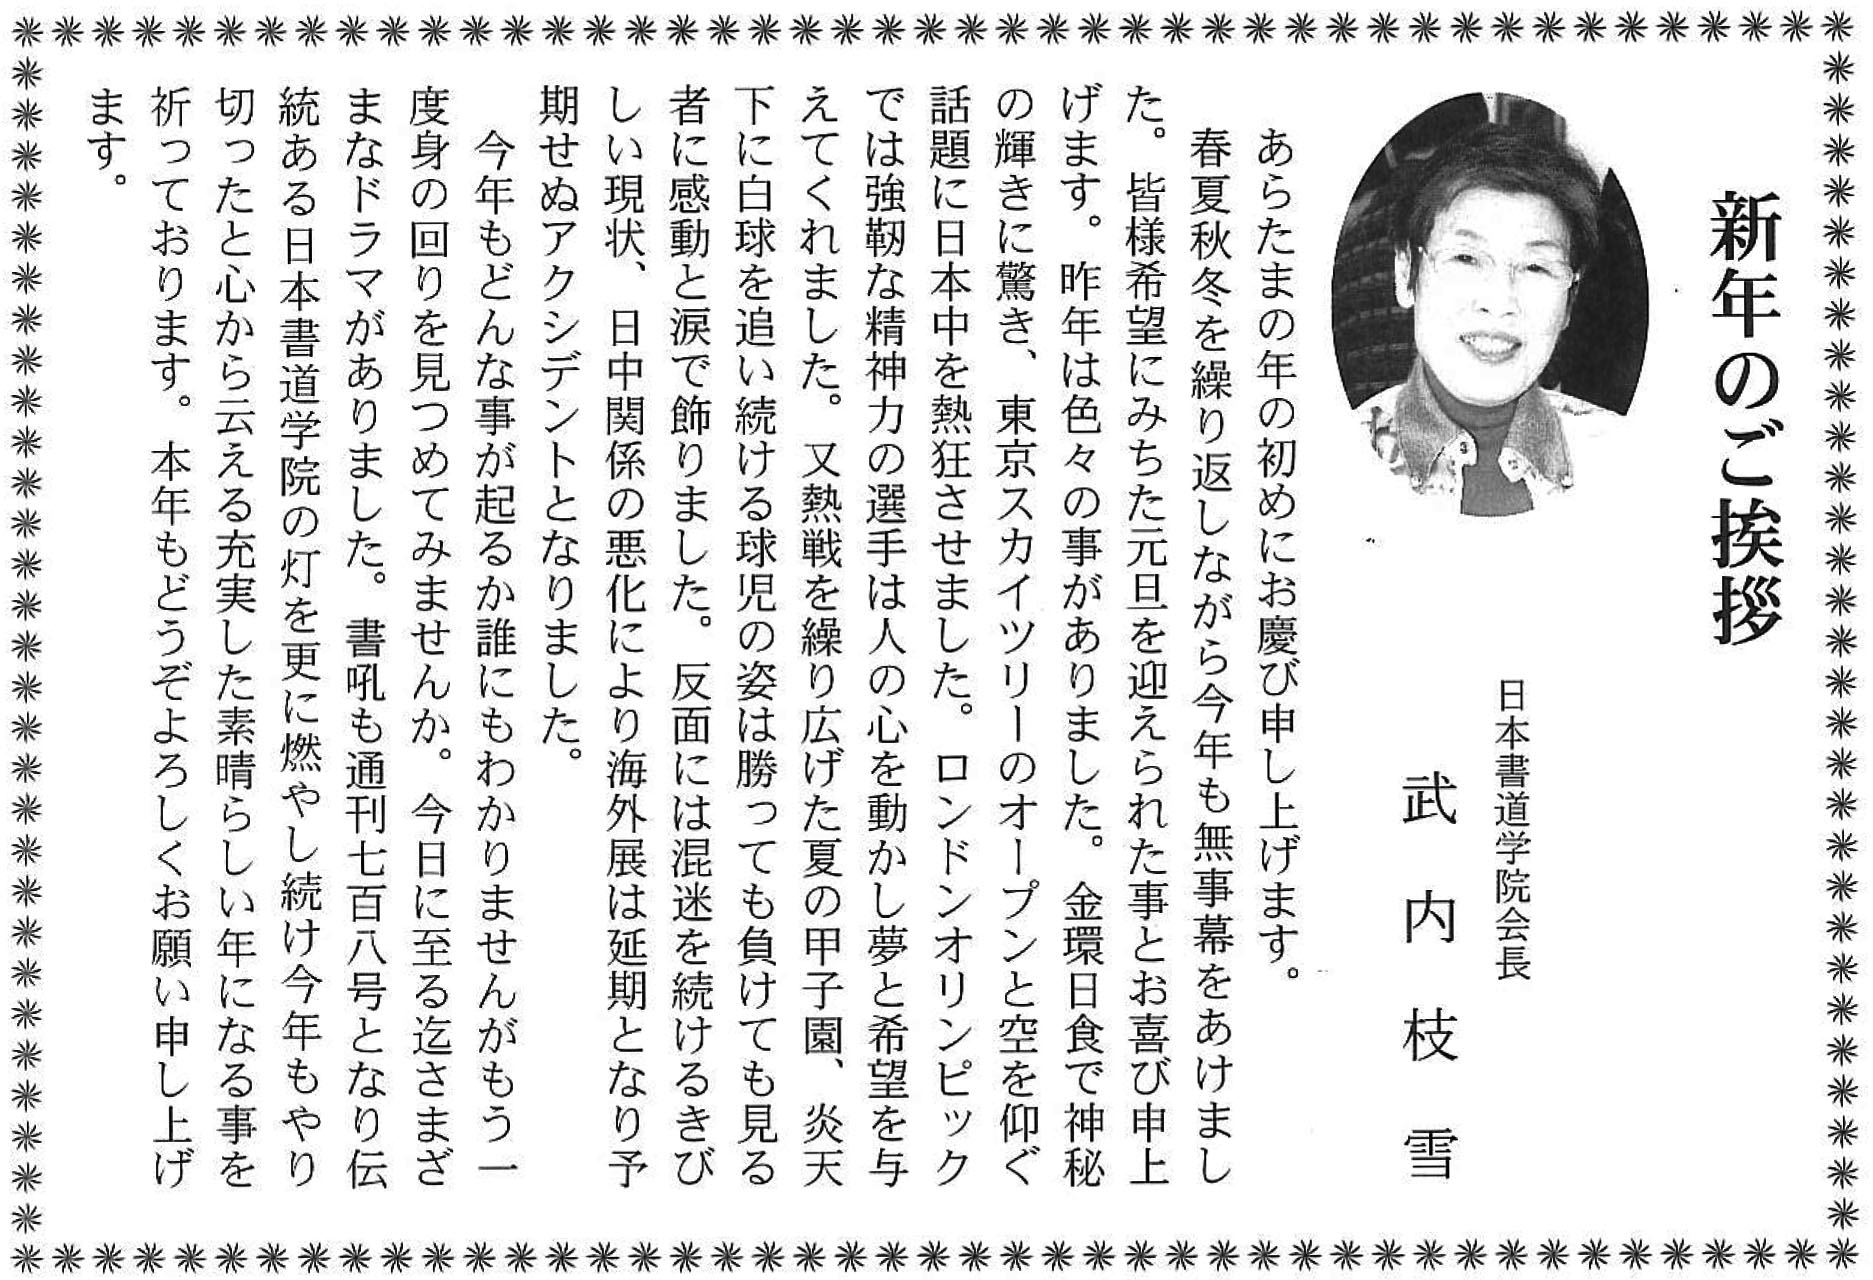 新年のご挨拶
日本書道学院会長
武内枝雪
あらたまの年の初めにお慶び申し上げます。
春夏秋冬を繰り返しながら今年も無事幕をあけまし
た。皆様希望にみちた元旦を迎えられた事とお喜び申上
げます。昨年は色々の事がありました。金環日食で神秘
の輝きに驚き、東京スカイツリーのオープンと空を仰ぐ
話題に日本中を熱狂させました。ロンドンオリンピック
では強靭な精神力の選手は人の心を動かし夢と希望を与
えてくれました。又熱戦を繰り広げた夏の甲子園、炎天
下に白球を追い続ける球児の姿は勝っても負けても見る
者に感動と涙で飾りました。反面には混迷を続けるきび
しい現状、日中関係の悪化により海外展は延期となり予
期せぬアクシデントとなりました。
今年もどんな事が起るか誰にもわかりませんがもう一
度身の回りを見つめてみませんか。今日に至る迄さまざ
まなドラマがありました。書吼も通刊七百八号となり伝
統ある日本書道学院の灯を更に燃やし続け今年もやり
切ったと心から云える充実した素晴らしい年になる事を
祈っております。本年もどうぞよろしくお願い申し上げ
ます。